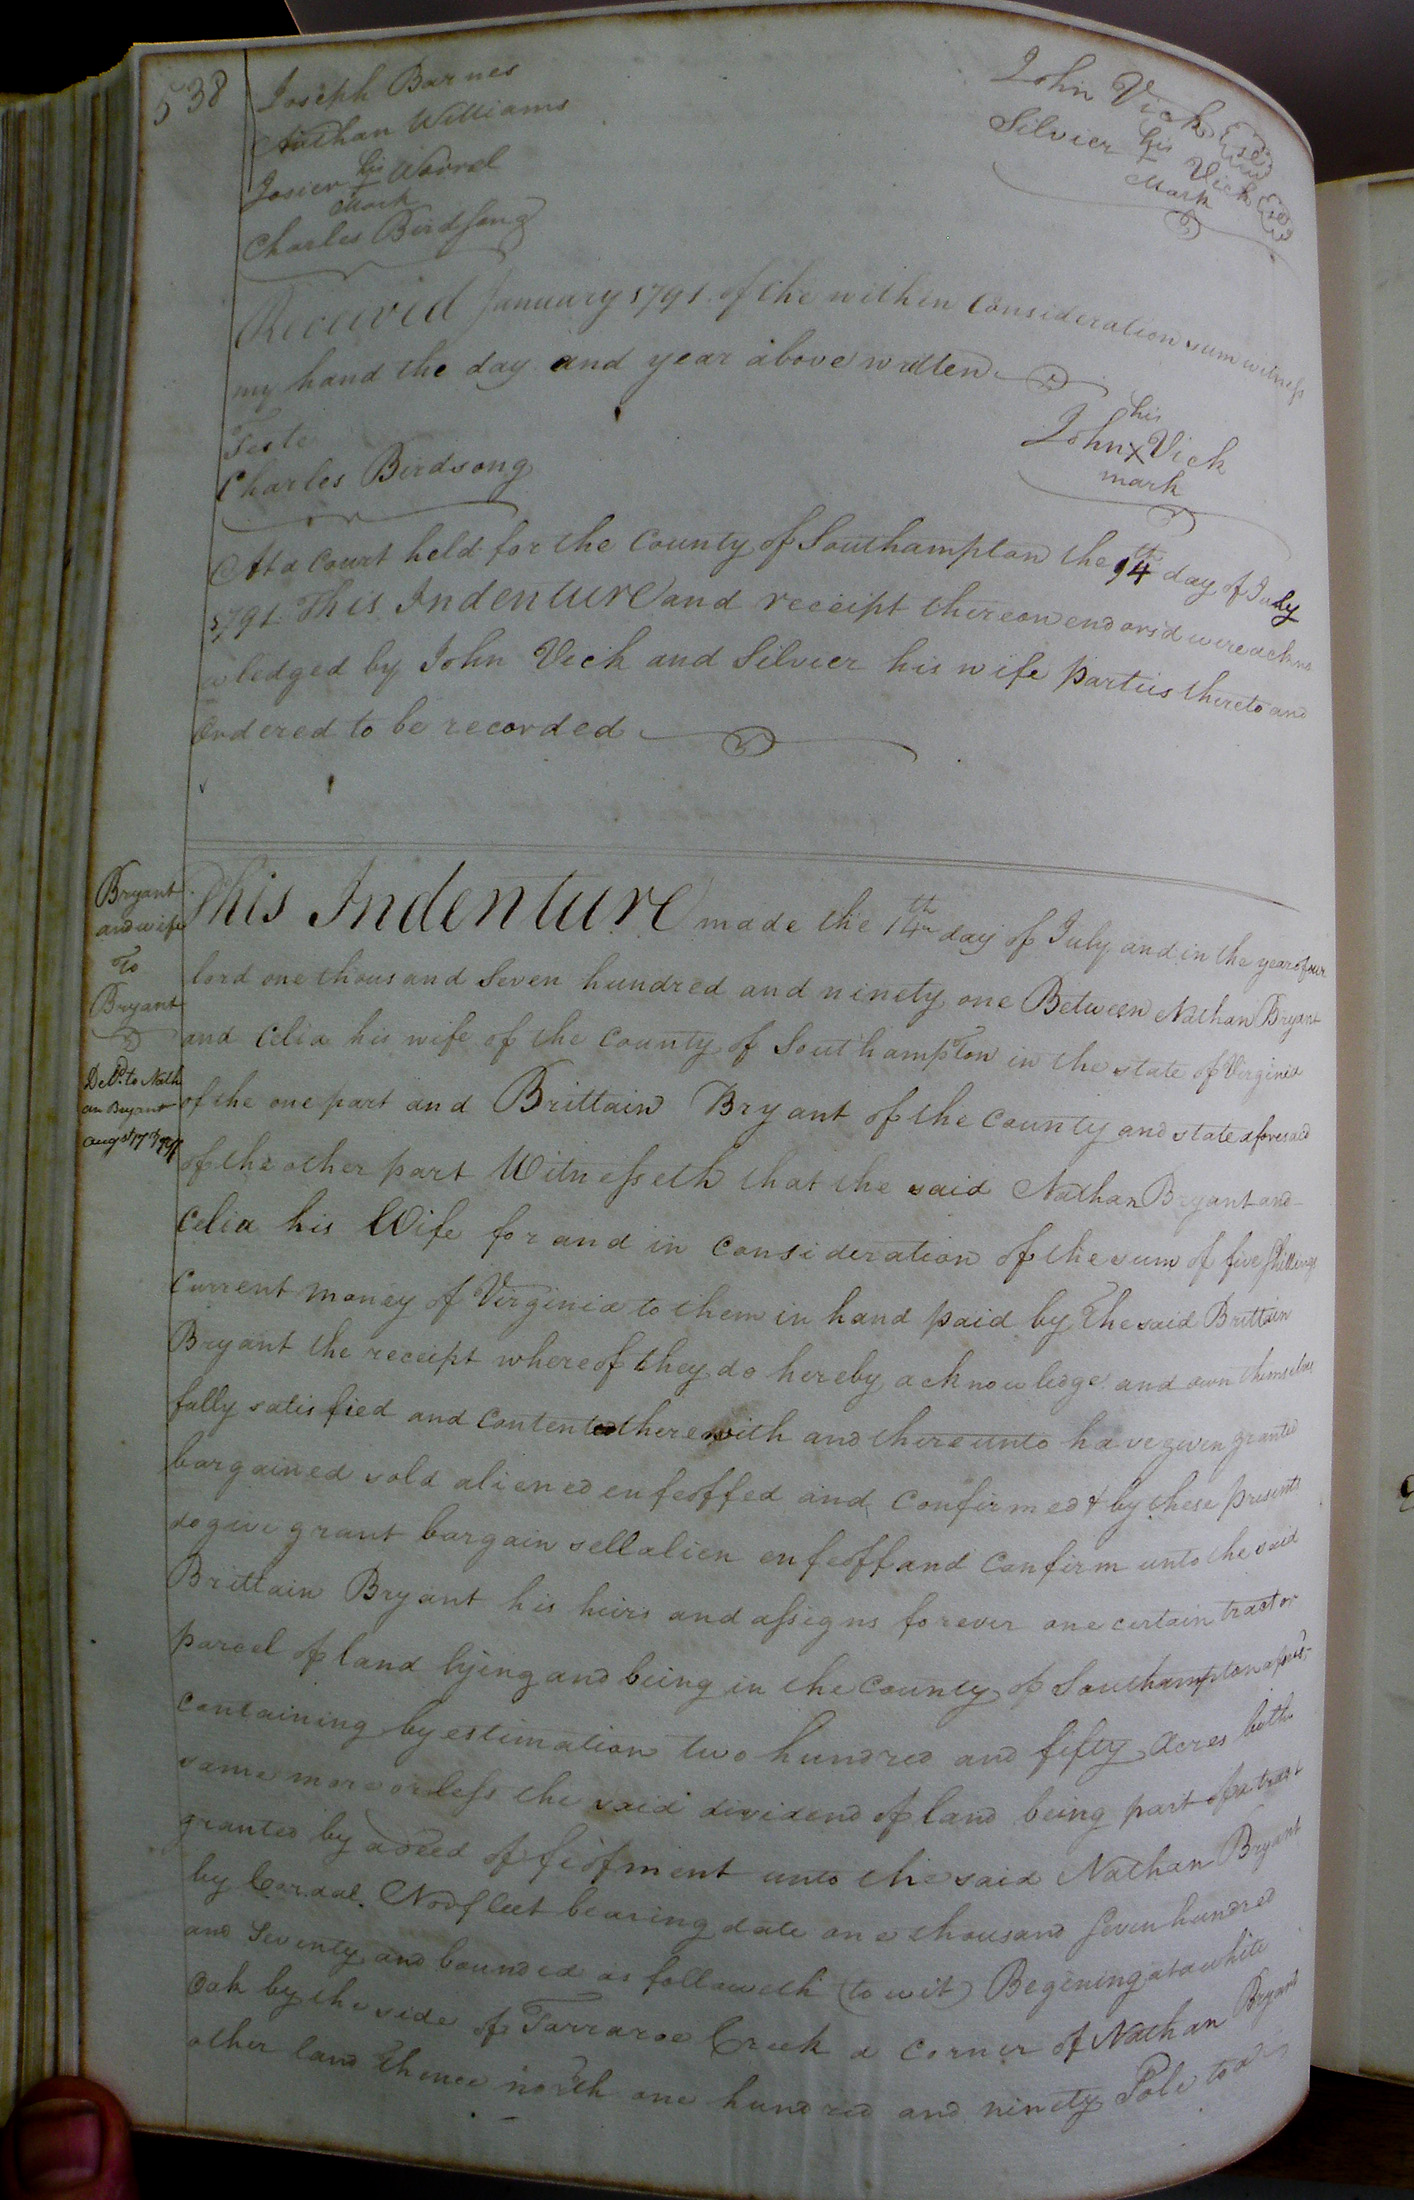 538
Joseph Barnes
Nathan Williams
Josier his Worrel
mark
Charles Birdsong
John Vick
Silvier his Vick
Mark
Received January 1791 of the within Consideration sum witness
my hand the day and year above written
Teste
Charles Birdsong
his
John X Vick
mark
At a Court held for the County of Southampton the 14th day of July
1791. This Indenture and receipt thereon endorsd were ackno
wledged by John Vick and Silvier his wife parties thereto and
Ordered to be recorded
Bryant
and wife
To
Bryant
Deld. to Nath
an Bryant
This Indenture made the 14th day of July and in the year of our
lord one thousand Seven hundred and ninety one Between Nathan Bryant
and Celia his wife of the County of Southampton in the state of Virginia
of the one part and Brittain Bryant of the County and state aforesaid
of the other part Witnesseth that the said Nathan Bryant and
Celia his Wife for and in Consideration of the sum of five Shillings
Current money of Virginia to them in hand paid by the said Brittain
Bryant the receipt whereof they do hereby acknowledge and own themselves
fully satisfied and Contented therewith and thereunto have given granted
bargained sold aliened enfeoffed and Confirmed & by these presents
do give grant bargain sell alien enfeoff and Confirm unto the said
Brittain Bryant his heirs and assigns forever one certain tract or
parcel of land lying and being in the County of Southampton aforesd.
Containing by estimation two hundred and fifty Acres be the
same more or less the said dividend of land being part of a tract
granted by a deed of feofment unto the said Nathan Bryant
by Cordal Norfleet bearing date one thousand Seven hundred
and Seventy and bounded as followeth (to wit) Begining at a white
Oak by the side of Tarraroe Creek a Corner of Nathan Bryant
other land thence north one hundred and ninety Pole to a